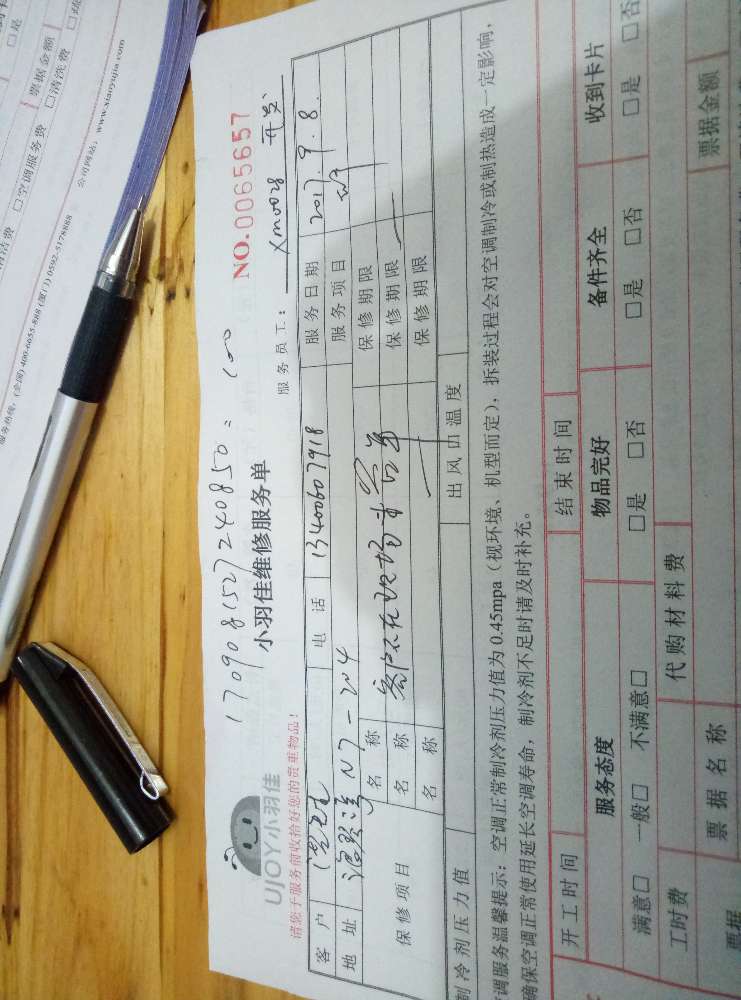 170908152240850:100
UJOY小羽佳
小羽佳维修服务单
NO.0065657
请您于服务前收拾好您的贵重物品!
服务员工: xm0028
客户 电话 13400607918 服务日期 2017.9.8.
地址 N7-204 服务项目
保修项目
名称 客户不在现场未签单 保修期限
名称 保修期限
名称 保修期限
制冷剂压力值 出风口温度
调服务温馨提示: 空调正常制冷剂压力值为 0.45mpa (视环境、机型而定), 拆装过程会对空调制冷或制热造成一定影响,
确保空调正常使用延长空调寿命, 制冷剂不足时请及时补充。
开工时间 结束时间
服务态度 物品完好 备件齐全 收到卡片
满意□ 一般□ 不满意□ □是 □否 □是 □否 □是 □否
工时费 代购材料费
票据名称 票据金额
票据
□是
票据金额
□空调服务费 □清洗费
服务热线: (全国) 400-6655-888 (厦门) 0592-5178888 公司网站: www.xiaoyujia.com